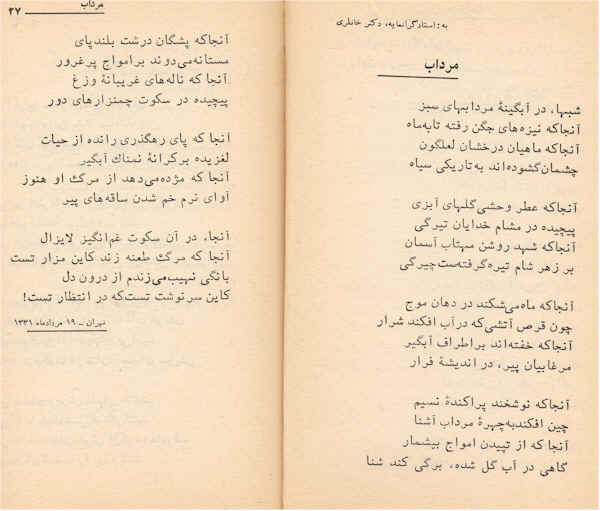 به: استاد گرانمایه، دکتر خانلری
مرداب
شبها، در آبگینهٔ مردابهای سبز
آنجاکه نیزه‌های جگن رفته تا به‌ماه
آنجاکه ماهیان درخشان لعلگون
چشمان گشوده‌اند به تاریکی سیاه
آنجاکه عطر وحشی گلهای آبزی
پیچیده در مشام خدایان تیرگی
آنجاکه شهد روشن مهتاب آسمان
بر زهر شام تیره گرفته‌ست چیرگی
آنجاکه ماه می‌شکند در دهان موج
چون قرص آتشی‌که درآب افکند شرار
آنجاکه خفته‌اند براطراف آبگیر
مرغابیان پیر، در اندیشهٔ فرار
آنجاکه نوشخند پراکندهٔ نسیم
چین افکندبه‌چهرهٔ مرداب آشنا
آنجا که از تپیدن امواج بیشمار
گاهی در آب گل شده، برگی کند شنا
مرداب
۲۷
آنجاکه پشگان درشت بلندپای
مستانه‌می‌دوند برامواج پرغرور
آنجا که ناله‌های غریبانهٔ وزغ
پیچیده در سکوت چمنزارهای دور
آنجا که پای رهگذری رانده از حیات
لغزیده برکرانهٔ نمناک آبگیر
آنجا که مژده‌می‌دهد از مرگ او هنوز
آوای نرم خم شدن ساقه‌های پیر
آنجا، در آن سکوت غم‌انگیز لایزال
آنجا که مرگ طعنه زند کاین مزار تست
بانگی نهیب‌می‌زندم از درون دل
کاین سرنوشت تست‌که در انتظار تست!
تهران - ۱۹ مردادماه ۱۳۳۱